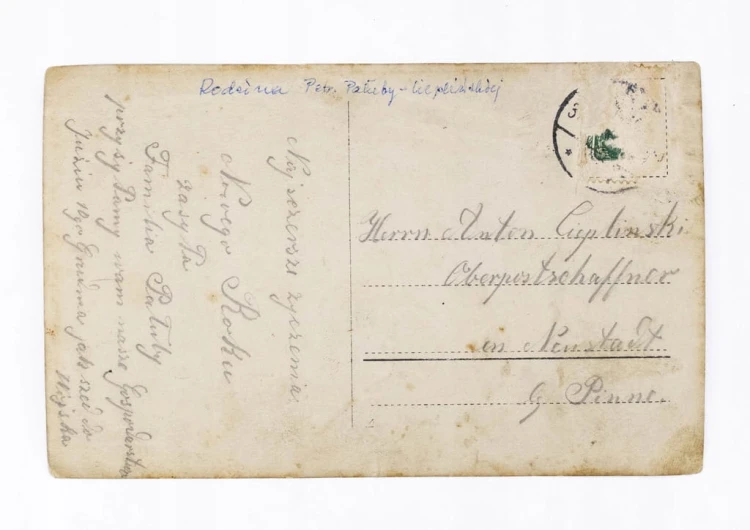 Rodzina Petr. Pałuby - Cieplińskiej
Najszczersze życzenia
Nowego Roku
zasyła
Familia Pałuby
przysyłamy wam nasze Gospodarstwo
19go Grudnia jak szed do
Wojska
Herrn Anton Cieplinski
Oberpostschaffner
in Neustadt
b/ Pinne.